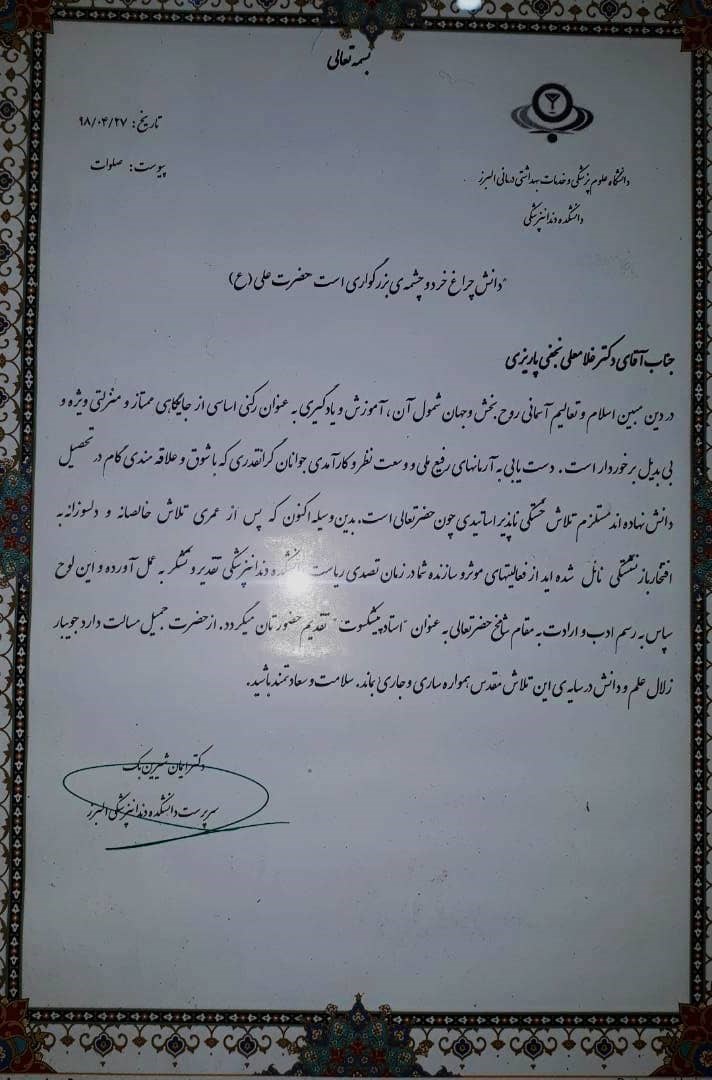 بسمه تعالی
تاریخ: ۹۸/۰۴/۲۷
پیوست: صلوات
دانشگاه علوم پزشکی و خدمات بهداشتی درمانی البرز
دانشکده دندانپزشکی
"دانش چراغ خرد و چشمه ی بزرگواری است حضرت علی (ع)
جناب آقای دکتر غلامعلی نجفی پاریزی
در دین مبین اسلام و تعالیم آسمانی روح بخش و جهان شمول آن، آموزش و یادگیری به عنوان رکنی اساسی از جایگاهی ممتاز و منزلتی ویژه و
بی بدیل برخوردار است. دست یابی به آرمانهای رفیع ملی و وسعت نظر و کارآمدی جوانان گرانقدری که با شوق و علاقه مندی گام در تحصیل
دانش نهاده اند مستلزم تلاش خستگی ناپذیر اساتیدی چون حضرتعالی است. بدین وسیله اکنون که پس از عمری تلاش خالصانه و دلسوزانه به
افتخار بازنشستگی نائل شده اید از فعالیتهای موثر و سازنده شما در زمان تصدی ریاست دانشکده دندانپزشکی تقدیر و تشکر به عمل آورده و این لوح
سپاس به رسم ادب و ارادت به مقام شامخ حضرتعالی به عنوان "استاد پیشکسوت" تقدیم حضورتان میگردد. از حضرت جمیل مسالت دارد جویبار
زلال علم و دانش در سایه ی این تلاش مقدس همواره ساری و جاری بماند. سلامت و سعادتمند باشید.
دکتر ایمان شیرین بک
سرپرست دانشکده دندانپزشکی البرز